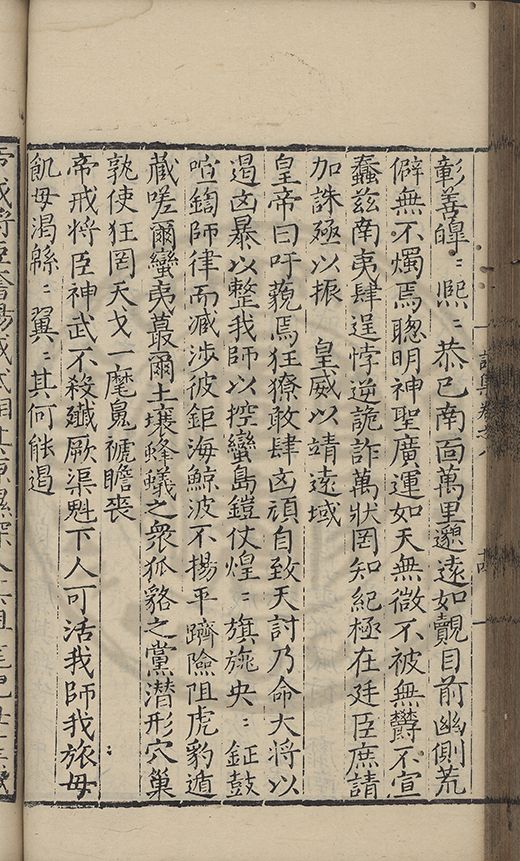 彰善皥〻熙〻恭己南面萬里邈遠如覿目前幽側荒
僻無不燭焉聦明神聖廣運如天無微不被無欝不宣
蠢兹南夷肆逞悖逆詭詐萬狀罔知紀極在廷臣庶請
加誅殛以振　皇威以靖遠域
皇帝曰吁藐焉狂獠敢肆凶頑自致天討乃命大將以
遏凶暴以整我師以控蠻島鎧仗煌〻旗旐央〻鉦鼓
喧鍧師律而臧涉彼鉅海鯨波不揚平躋險阻虎豹遁
藏嗟爾蠻夷蕞爾土壤蜂蟻之衆狐貉之黨潜形穴巢
孰使狂罔天戈一麾鬼褫膽喪
帝戒將臣神武不殺殱厥渠魁下人可活我師我旅毋
飢毋渴緜〻翼〻其何能遏
詩集卷之八
十四